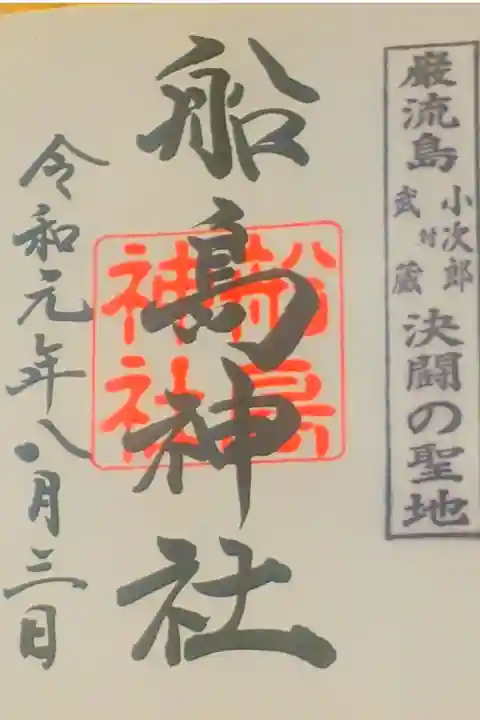 巌流島 小次郎 対 武蔵 決闘の聖地
船島神社
船島
神社
令和元年八月三日